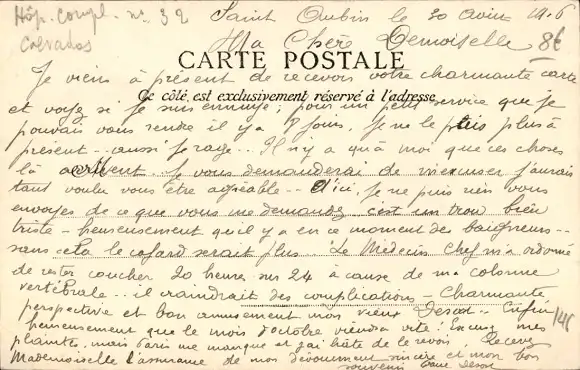 Hôp. Compl. n° 32 Saint Aubin le 20 1916
Calvados Ma Chère Demoiselle 8€
CARTE POSTALE
Je viens à présent de recevoir votre charmante carte
Ce côté est exclusivement réservé à l'adresse
et voyez si je suis ennuyé; pour un petit service que je
pouvais vous rendre il y a 8 jours, je ne le puis plus à
présent -- aussi je rage.. Il n'y a qu'à moi que ces choses
là arrivent. Je vous demanderai de m'excuser j'aurais
tant voulu vous être agréable.. D'ici, je ne puis rien vous
envoyer de ce que vous me demandez c'est un trou bien
triste - heureusement qu'il y a en ce moment des baigneurs --
sans cela le cafard serait plus.. Le Médecin Chef m'a ordonné
de rester coucher 20 heures sur 24 à cause de ma colonne
vertébrale.. il craindrait des complications - Charmante
perspective et bon amusement mon vieux .. Enfin
heureusement que le mois d'octobre viendra vite! Excusez mes
plaintes, mais Paris me manque et j'ai hâte de le revoir. Recevez
Mademoiselle l'assurance de mon dévouement sincère et mon bon
souvenir
146